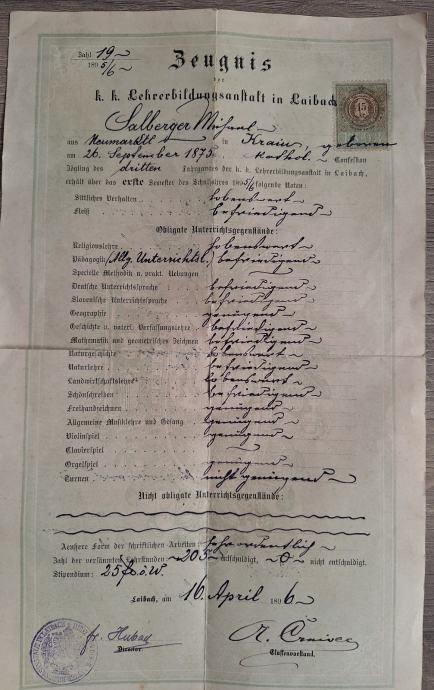 Zahl 19
1895/6
Zeugnis
der
k. k. Lehrerbildungsanstalt in Laibach
15
Salberger Michael
aus Neumarktl in Krain, geboren
am 26. September 1875, kathol. Confession
Zögling des dritten Jahrganges der k. k. Lehrerbildungsanstalt in Laibach,
erhält über das erste Semester des Schuljahres 1895/6 folgende Noten:
Sittliches Verhalten lobenswert
Fleiß befriedigend
Obligate Unterrichtsgegenstände:
Religionslehre lobenswert
Pädagogik (Allg. Unterrichtsl.) befriedigend
Specielle Methodik u. prakt. Uebungen
Deutsche Unterrichtssprache befriedigend
Slovenische Unterrichtssprache befriedigend
Geographie genügend
Geschichte u. vaterl. Verfassungslehre befriedigend
Mathematik und geometrisches Zeichnen befriedigend
Naturgeschichte lobenswert
Naturlehre befriedigend
Landwirtschaftslehre lobenswert
Schönschreiben befriedigend
Freihandzeichnen genügend
Allgemeine Musiklehre und Gesang genügend
Violinspiel genügend
Clavierspiel
Orgelspiel genügend
Turnen nicht genügend
Nicht obligate Unterrichtsgegenstände:
Aeußere Form der schriftlichen Arbeiten: sehr ordentlich
Zahl der versäumten Lehrstunden 205 entschuldigt, 0 nicht entschuldigt.
Stipendium: 25 fl. ö. W.
Laibach, am 16. April 1896
fr. Hubad
Director.
Classenvorstand.